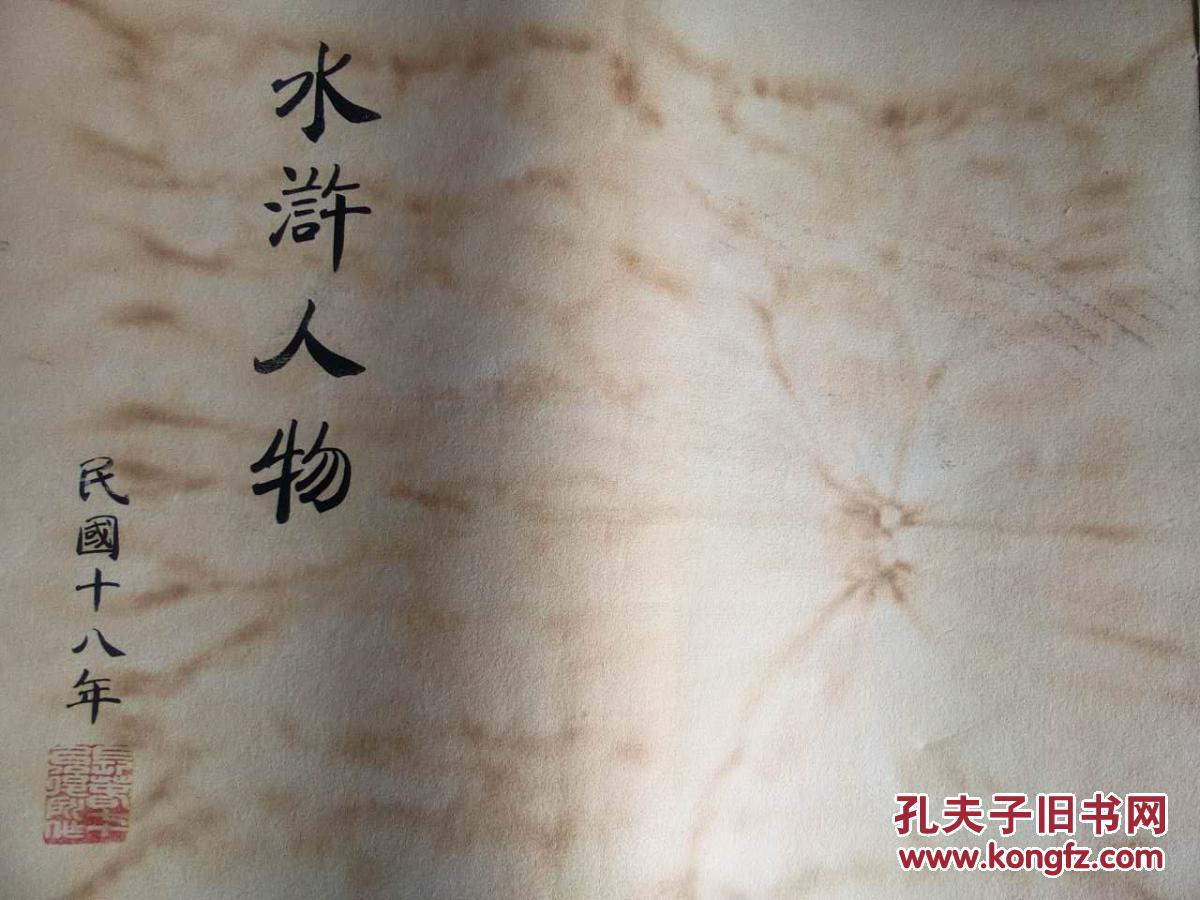 水滸人物
民國十八年
孔夫子旧书网
www.kongfz.com